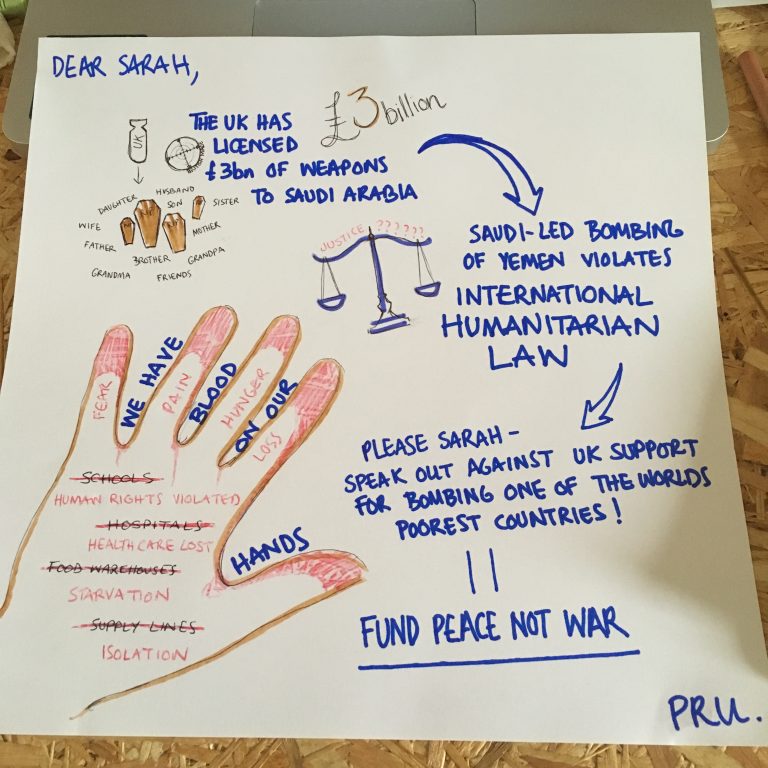 DEAR SARAH,
UK
THE UK HAS
LICENSED
£3bn OF WEAPONS
TO SAUDI ARABIA
£3 billion
DAUGHTER
HUSBAND
SON
SISTER
WIFE
MOTHER
FATHER
BROTHER
GRANDPA
GRANDMA
FRIENDS
JUSTICE ??????
SAUDI-LED BOMBING
OF YEMEN VIOLATES
INTERNATIONAL
HUMANITARIAN
LAW
WE HAVE
BLOOD
ON OUR
HANDS
FEAR
PAIN
HUNGER
LOSS
SCHOOLS
HUMAN RIGHTS VIOLATED
HOSPITALS
HEALTHCARE LOST
FOOD WAREHOUSES
STARVATION
SUPPLY LINES
ISOLATION
PLEASE SARAH-
SPEAK OUT AGAINST UK SUPPORT
FOR BOMBING ONE OF THE WORLDS
POOREST COUNTRIES!
FUND PEACE NOT WAR
PRU.